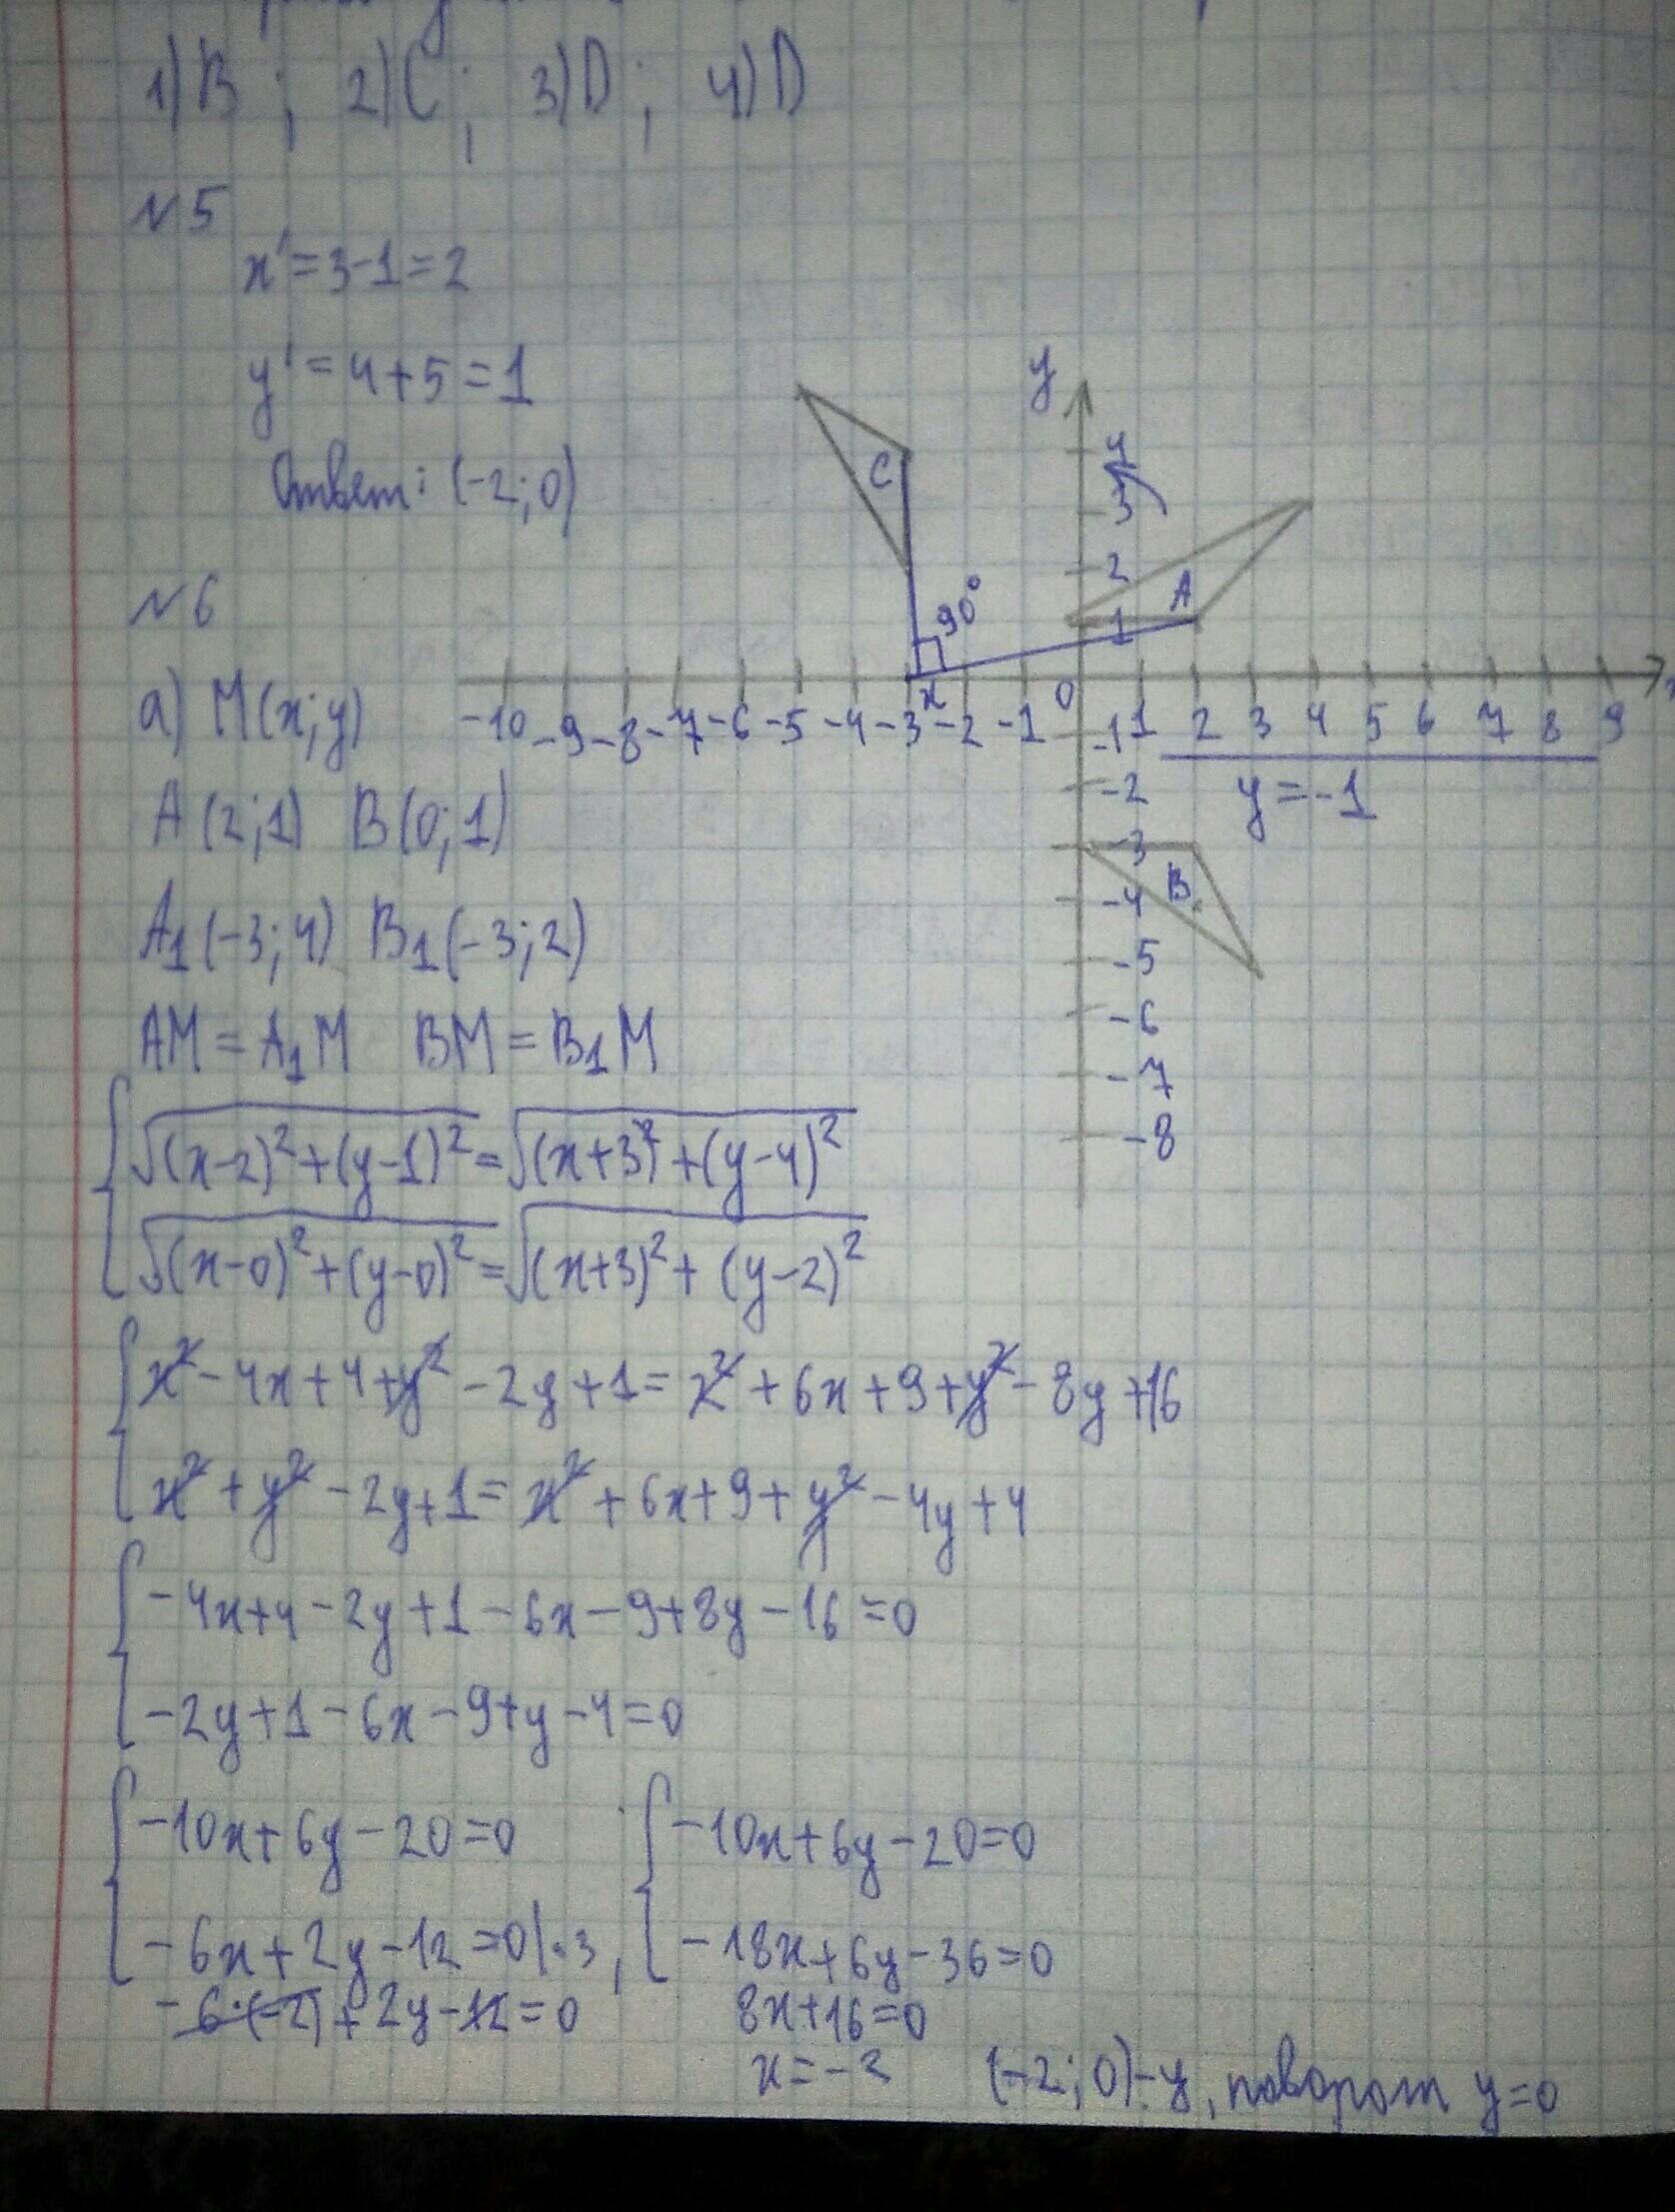 1) B ; 2) C ; 3) D ; 4) D
№5
x' = 3-1 = 2
y' = 4+5 = 1
Ответ: (-2; 0)
№6
а) M(x; y)
A(2; 1) B(0; 1)
A₁(-3; 4) B₁(-3; 2)
AM = A₁M BM = B₁M
√(x-2)²+(y-1)² = √(x+3)²+(y-4)²
√(x-0)²+(y-0)² = √(x+3)²+(y-2)²
x²-4x+4+y²-2y+1 = x²+6x+9+y²-8y+16
x²+y²-2y+1 = x²+6x+9+y²-4y+4
-4x+4-2y+1-6x-9+8y-16=0
-2y+1-6x-9+y-4=0
-10x+6y-20=0
-6x+2y-12=0|·3,
-6·(-2)+2y-12=0
-10x+6y-20=0
-18x+6y-36=0
8x+16=0
x=-2
(-2; 0)-y, поворот y=0
y
4
3
2
1
C
90°
A
x
0
-10 -9 -8 -7 -6 -5 -4 -3 -2 -1 1 2 3 4 5 6 7 8 9
-1
y=-1
-2
-3
B
-4
-5
-6
-7
-8